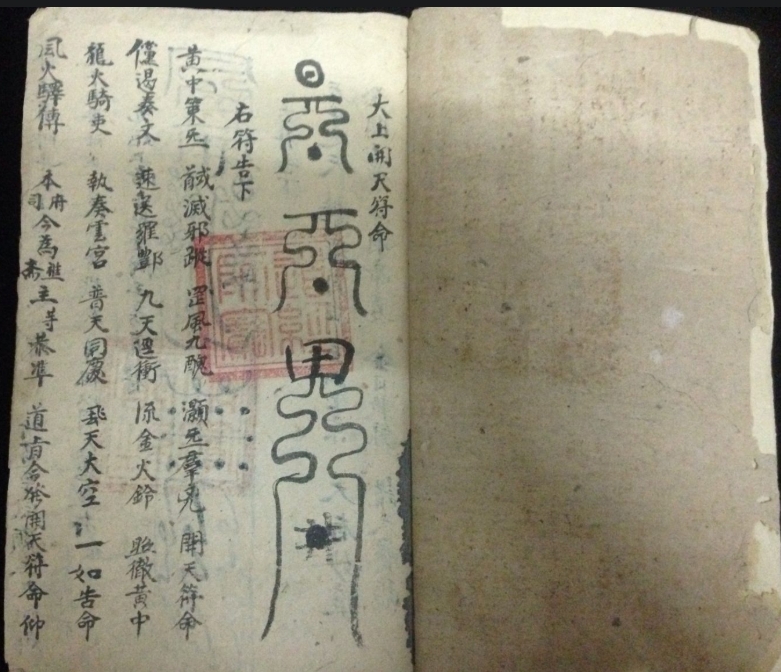 大上開天符命
右符告下
黃中策炁 馘滅邪蹤 罡風九醜 灝炁羣兇 開天符命
奏文 速送羅酆 九天 衝 流金火鈴 照徹黃中
龍火騎吏 執奏雲宮 普天同慶 飛天大空 一如告命
風火驛傳 本府司今為醮齋主等恭準 道旨合發開天符命仰